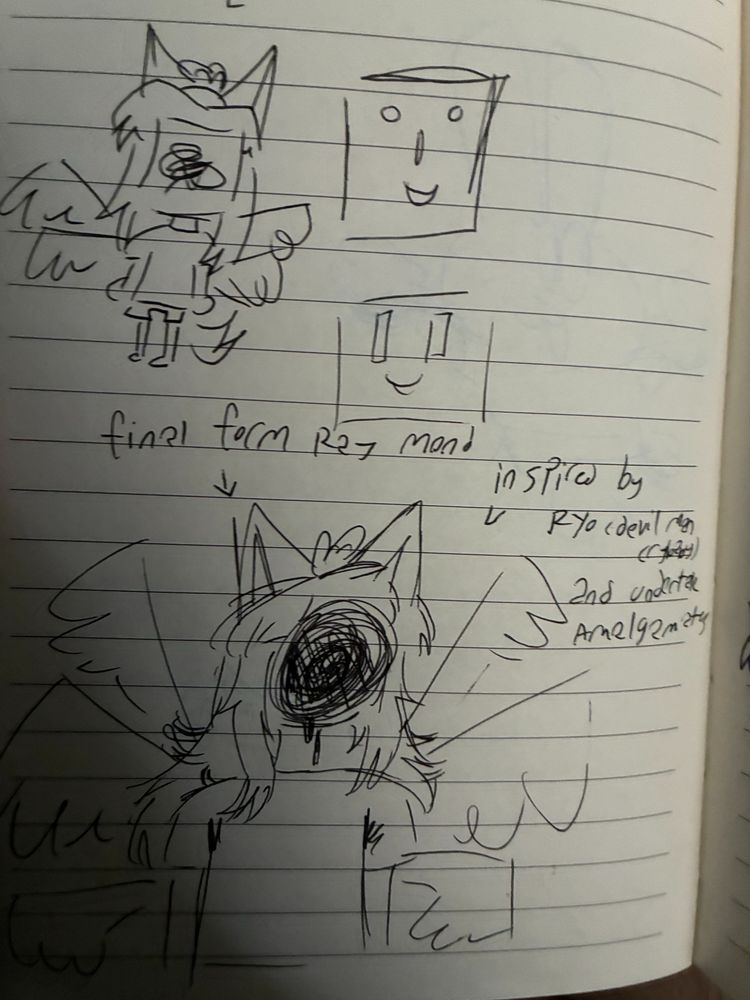 final form Ray mond
inspired by
Ryo (devil man
and undertale
Amalgamates